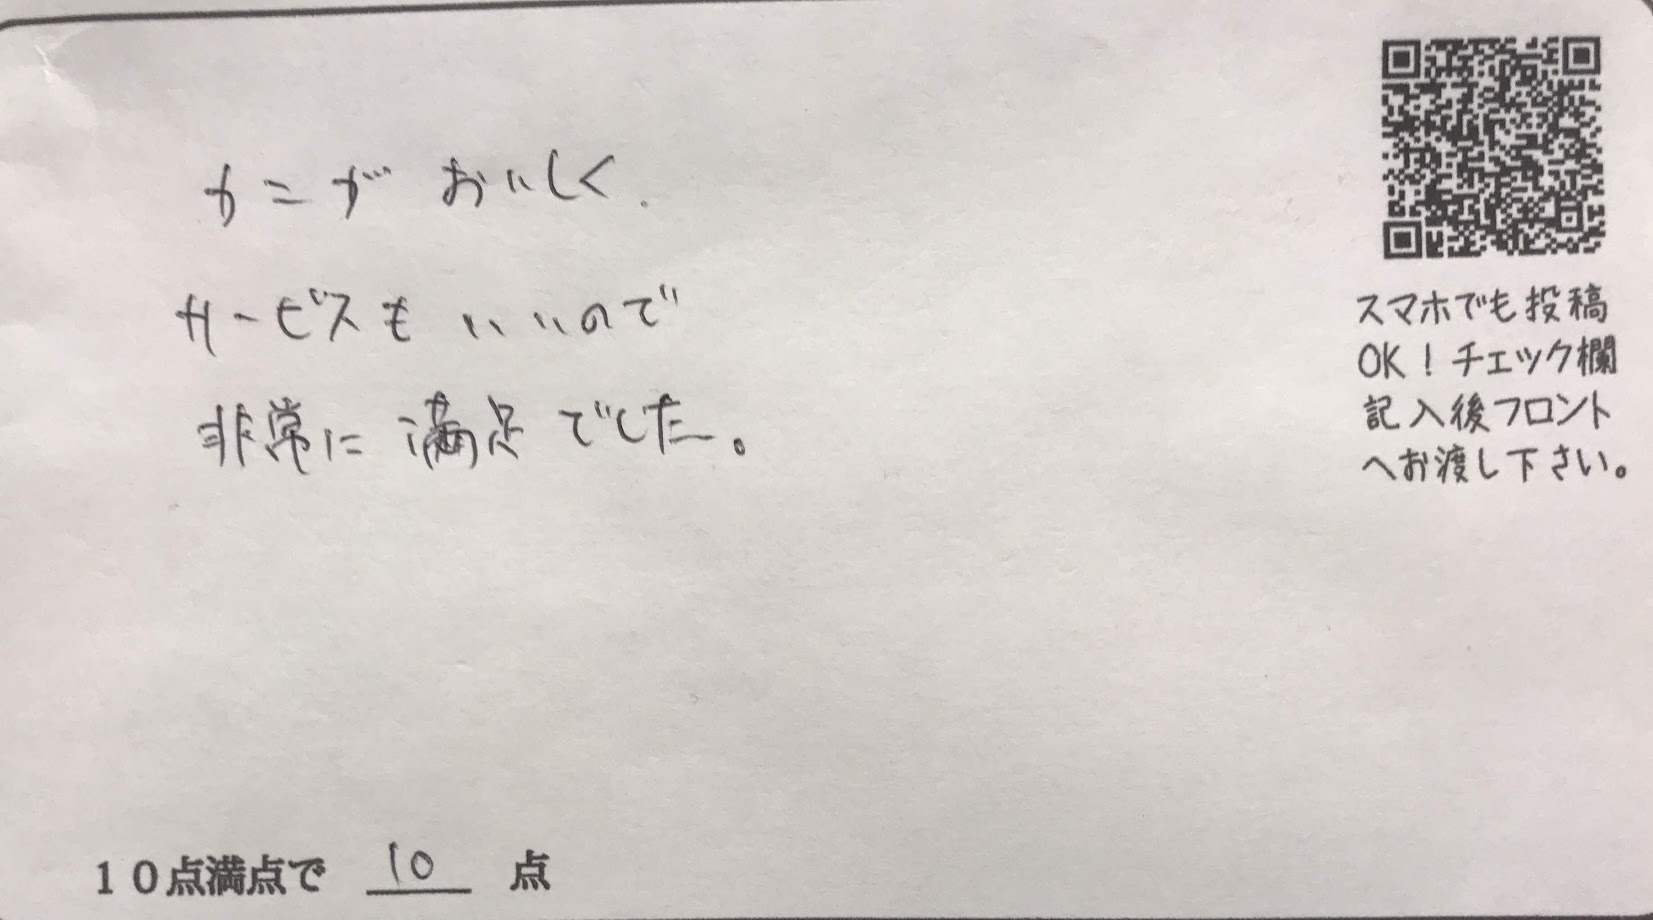 カニがおいしく.
サービスもいいので
非常に満足でした。
スマホでも投稿
OK！チェック欄
記入後フロント
へお渡し下さい。
10点満点で 10 点